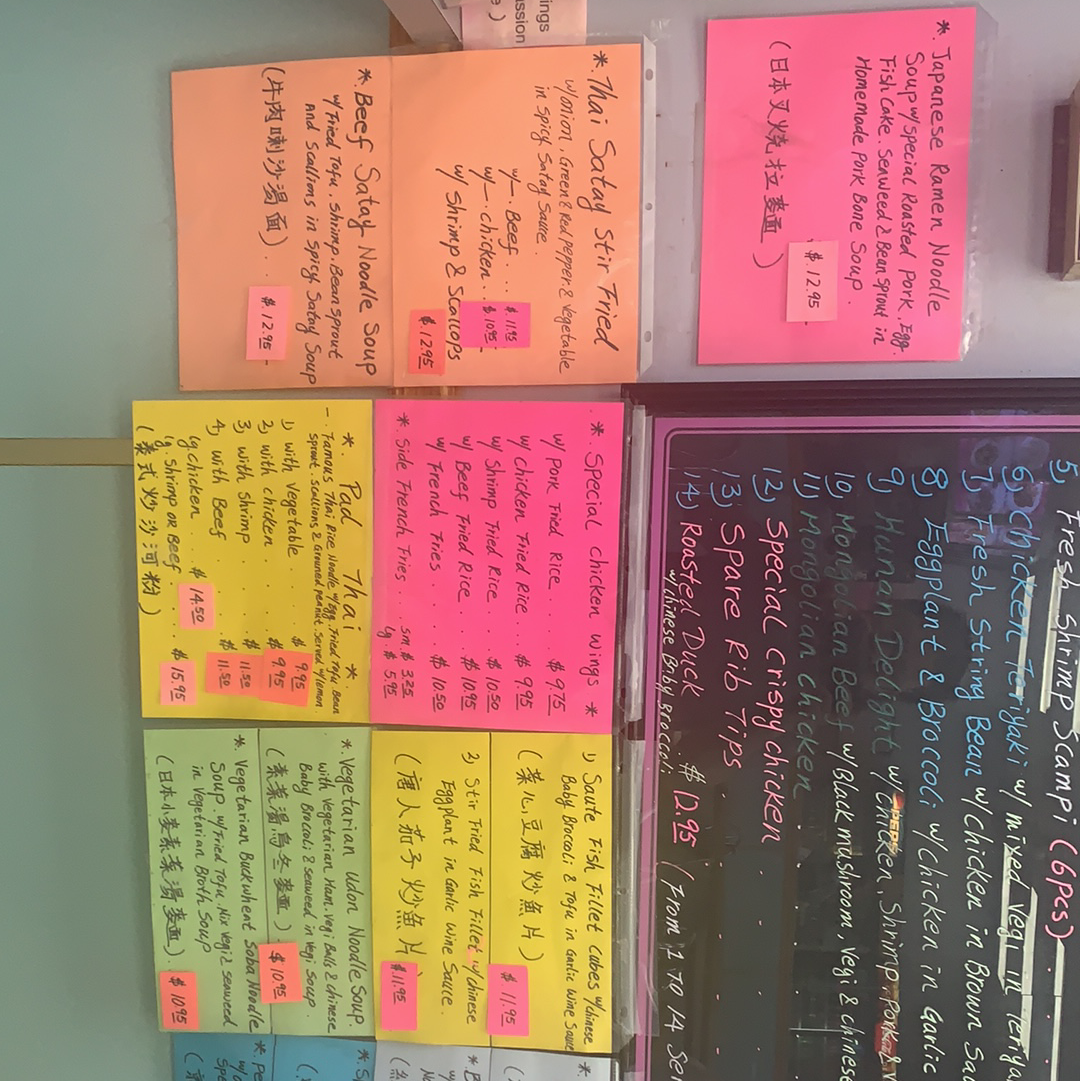 ings
ssion
e )
*. Japanese Ramen Noodle
Soup w/ Special Roasted Pork, Egg.
Fish Cake. Seaweed & Bean sprout in
Homemade Pork Bone Soup.
(日本叉燒拉麵)
$.12.95
*. Thai Satay Stir Fried
w/onion, Green & Red pepper & vegetable
in Spicy Satay Sauce.
w/—. Beef... $.11.95
w/—. chicken.. $.10.95
w/ Shrimp & Scallops $.12.95
*. Beef Satay Noodle Soup
w/ Fried Tofu. Shrimp. Bean Sprout
And Scallions in Spicy Satay Soup
(牛肉喇沙湯面)...
$.12.95
* Special chicken wings *
w/ Pork Fried Rice. . . $ 9.75
w/ chicken Fried Rice... $ 9.95
w/ Shrimp Fried Rice... $ 10.50
w/ Beef Fried Rice... $ 10.95
w/ French Fries . . . $ 10.50
*. Side French Fries... sm. $ 3.25
lg. $ 5.95
*. Pad Thai *
– Famous Thai Rice Noodle w/Egg. Fried Tofu. Bean
sprout. Scallions & Grouned peanut. Served w/lemon.
1) with Vegetable . . . $ 9.95
2) with chicken . . . $ 9.95
3) with Shrimp . . . $ 11.50
4) with Beef . . . $ 11.50
lg. chicken... $ 14.50
lg. Shrimp or Beef... $ 15.95
(泰式炒沙河粉)
1) Saute Fish Fillet Cubes w/chinese
Baby Broccoli & Tofu in Garlic Wine Sauce
(菜心豆腐炒魚片)
$ 11.95
3) Stir Fried Fish Fillet w/chinese
Eggplant in Garlic Wine Sauce.
(唐人茄子炒魚片)
$.11.95
*. Vegetarian Udon Noodle Soup.
with vegetarian Ham. Vegi Balls & chinese
Baby Broccoli & seaweed in vegi Soup.
(素菜湯烏冬麵)
$ 10.95
*. Vegetarian Buckwheat Soba Noodle
Soup w/Fried Tofu, Mix Vegi & seaweed
in Vegetarian Broth Soup
(日本小麥素菜湯麵).
$ 10.95
5) Fresh Shrimp Scampi (6pcs)
6) Chicken Teriyaki w/ mixed vegi in Teriya
7) Fresh String Bean w/ chicken in Brown Sa
8) Eggplant & Broccoli w/ chicken in Garlic
9) Hunan Delight w/ chicken, Shrimp Pork & v
10) Mongolian Beef w/ Black mushroom, Vegi & chinese
11) Mongolian chicken
12) Special crispy chicken
13) Spare Rib Tips
14) Roasted Duck $ 12.95 (From 1 To 14 Ser
w/chinese Baby Broccoli